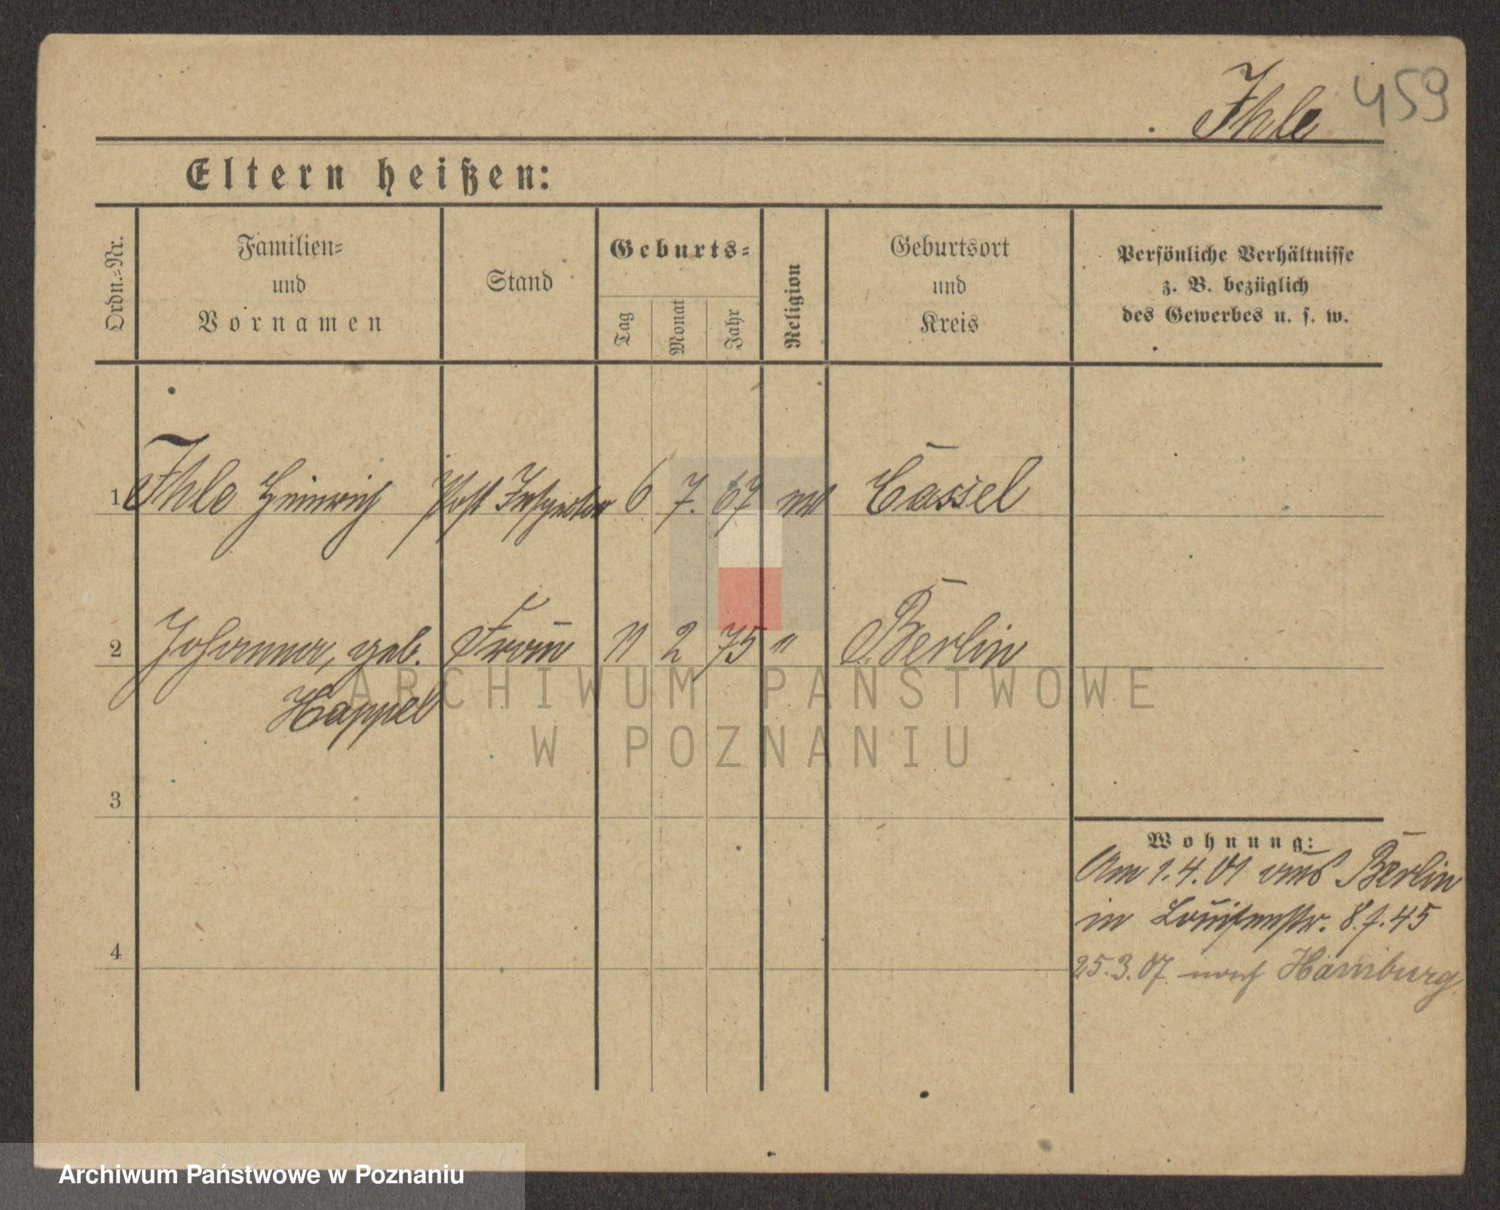 Ihle 459
Eltern heißen:
Ordn.=Nr.
Familien=
und
Vornamen
Stand
Geburts=
Tag
Monat
Jahr
Religion
Geburtsort
und
Kreis
Persönliche Verhältnisse
z. B. bezüglich
des Gewerbes u. s. w.
1 Ihle Heinrich Post Inspektor 6 7. 67 Cassel
2 Johanna, geb. Frau 11 2 75 " Berlin
Happel
ARCHIWUM PAŃSTWOWE
W POZNANIU
3
Wohnung:
Am 1.4.01 aus Berlin
in Louisenstr. 8.f.45
4
25.3.07 nach Hamburg
Archiwum Państwowe w Poznaniu